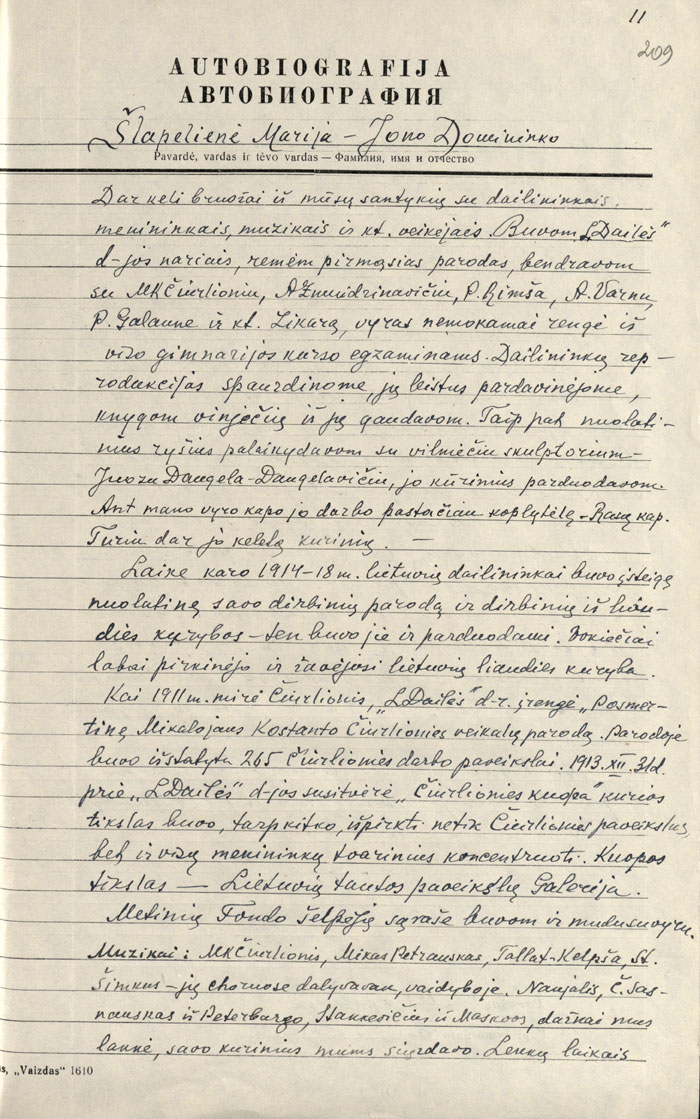 11
209
AUTOBIOGRAFIJA
АВТОБИОГРАФИЯ
Šlapelienė Marija – Jono Domininko
Pavardė, vardas ir tėvo vardas — Фамилия, имя и отчество
Dar keli bruožai iš mūsų santykių su dailininkais,
menininkais, muzikais ir kt. veikėjais. Buvom „LDailės"
d-jos nariais, rėmėm pirmąsias parodas, bendravom
su MKČiurlioniu, AŽmuidzinavičiu, P. Rimša, A. Varnu,
P. Galaune ir kt. Likarą, vyras nemokamai rengė iš
viso gimnazijos kurso egzaminams. Dailininkų rep-
rodukcijas spausdinome, jų leistus pardavinėjome,
knygom vinječių iš jų gaudavom. Taip pat nuolati-
nius ryšius palaikydavom su vilniečiu skulptorium-
Juozu Daugela-Daugelavičiu, jo kūrinius parduodavom.
Ant mano vyro kapo jo darbo pastačiau koplytėlę – Rasų kap.
Turiu dar jo keletą kurinių. —
Laike karo 1914–18 m. lietuvių dailininkai buvo įsteigę
nuolatinę savo dirbinių parodą ir dirbinių iš liau-
dies kurybos – ten buvo jie ir parduodami. Vokiečiai
labai pirkinėjo ir žavėjosi lietuvių liaudies kuryba.
Kai 1911 m. mirė Čiurlionis, „LDailės" d-r. įrengė „Posmer-
tinę Mikalojaus Kostanto Čiurlionies veikalų parodą. Parodoje
buvo išstatyta 265 Čiurlionies darbo paveikslai. 1913.XII.31d.
prie „LDailės" d-jos susitvėrė „Čiurlionies kuopa" kurios
tikslas buvo, tarp kitko, išpirkti netik Čiurlionies paveikslus,
bet ir visų menininkų tvarinius koncentruoti. Kuopos
tikslas — Lietuvių tautos paveikslų Galerija.
Metinių Fondo šelpėjų sąraše buvom ir mudu su vyru.
Muzikai: MKČiurlionis, Mikas Petrauskas, Tallat-Kelpša, St.
Šimkus – jų choruose dalyvavau, vaidyboje. Naujalis, Č. Sas-
nauskas iš Peterburgo, Stankevičius iš Maskvos, dažnai mus
lankė, savo kurinius mums Lenkų laikais
s, „Vaizdas" 1610